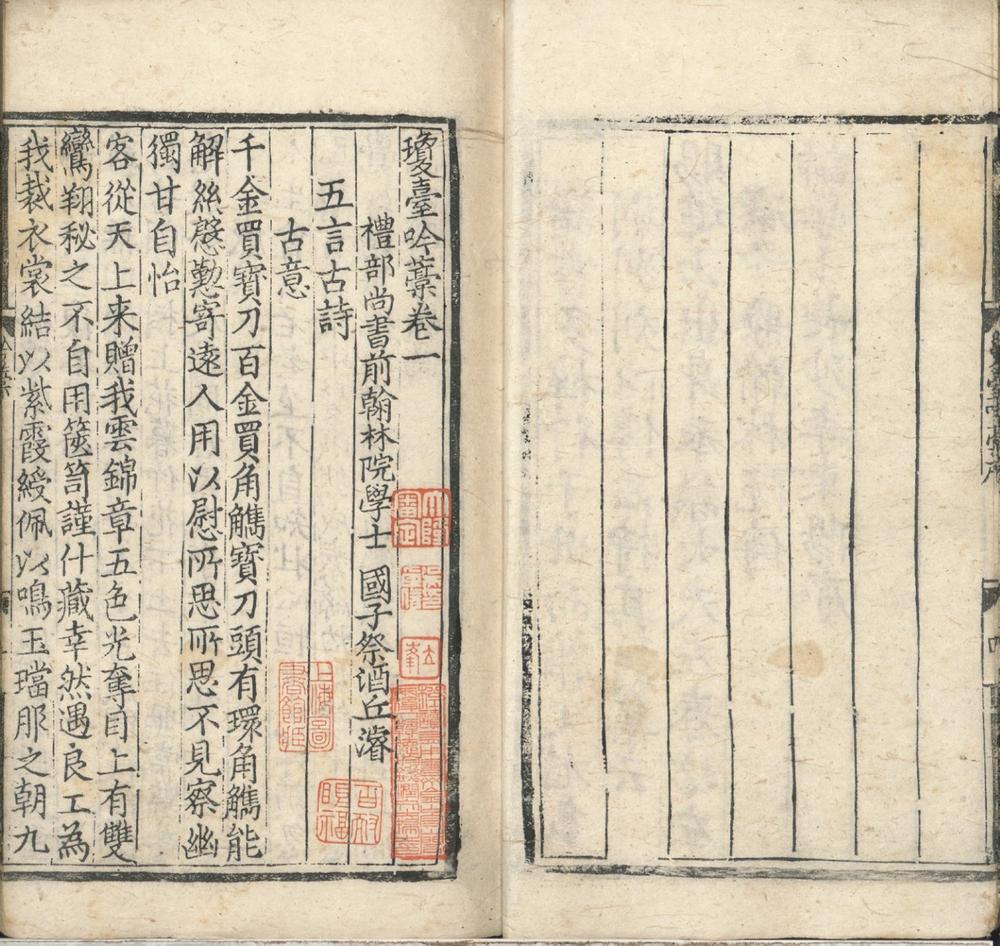 瓊臺吟藁卷一
禮部尚書前翰林院學士國子祭酒丘濬
五言古詩
古意
千金買寳刀百金買角觹寳刀頭有環角觹能
解絲慇懃寄遠人用以慰所思所思不見察幽
獨甘自怡
客從天上来贈我雲錦章五色光奪目上有雙
鸞翔秘之不自用篋笥謹什藏幸然遇良工為
我裁衣裳結以紫霞綬佩以鳴玉璫服之朝九
上海圖
書館藏